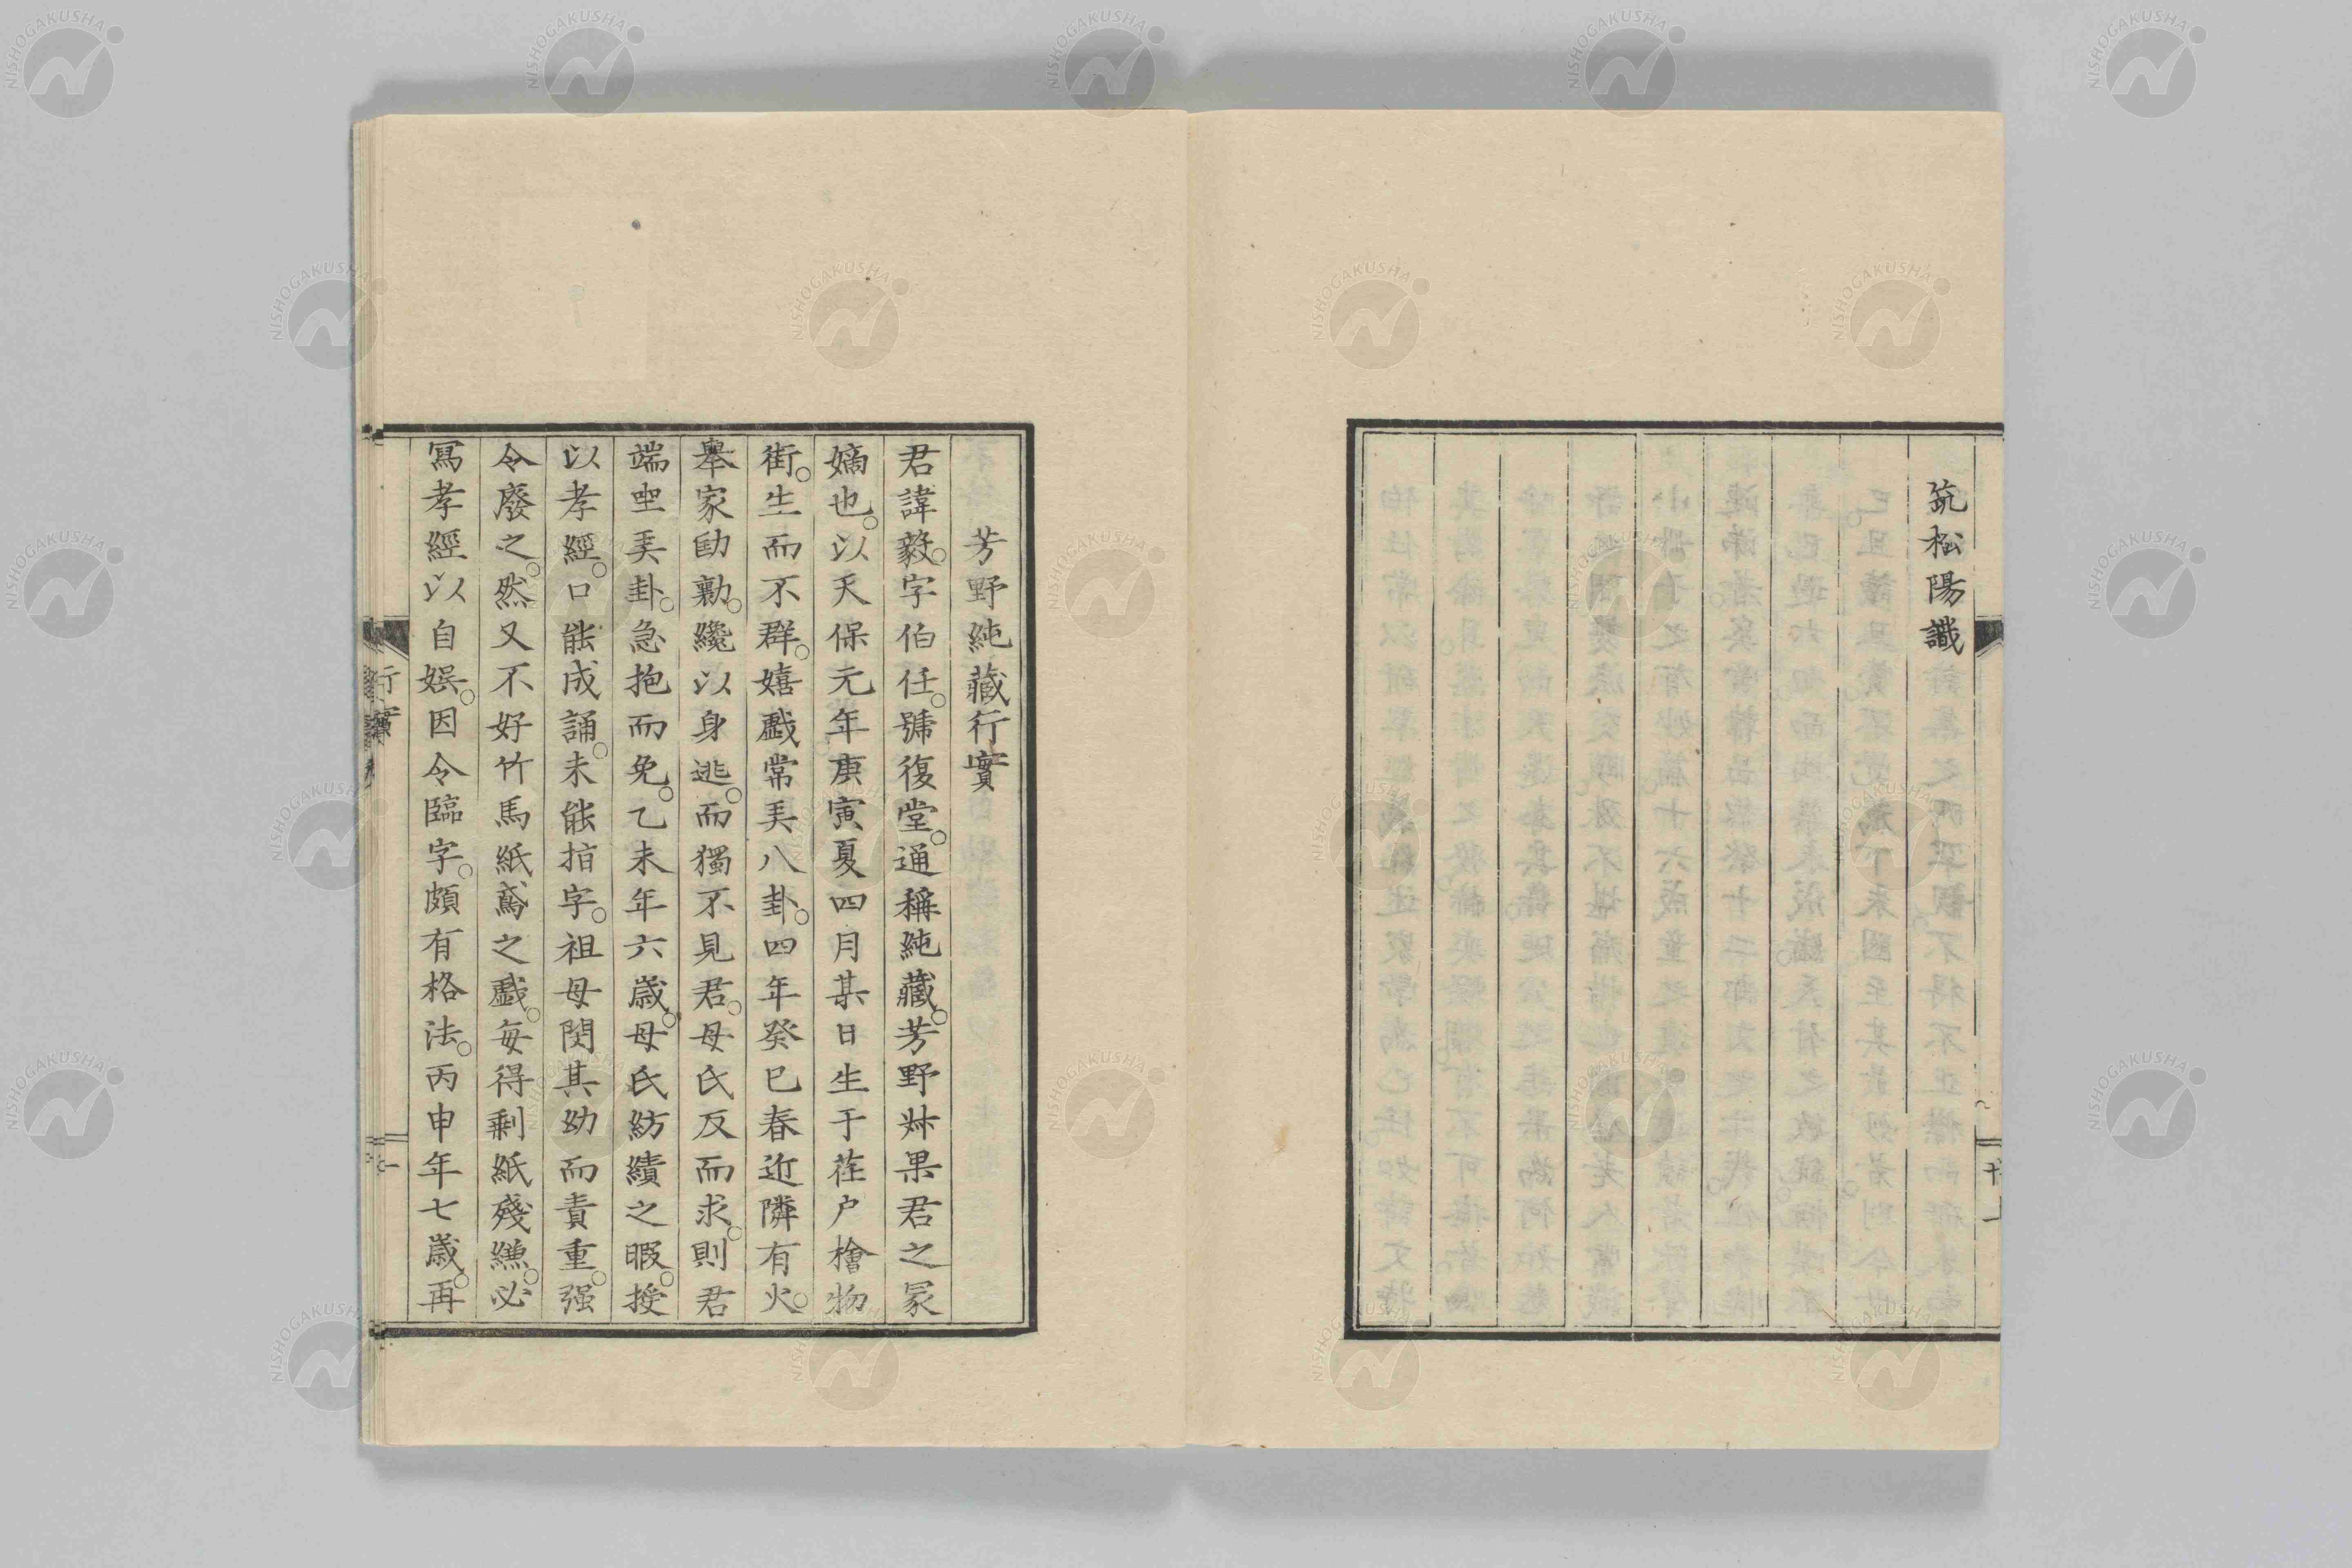 筑松陽識
十一
芳野純藏行實
君諱毅。字伯任。號復堂。通稱純藏。芳野叔果君之冢
嫡也。以天保元年庚寅夏四月某日生于荏戶檜物
街。生而不群。嬉戲常美八卦。四年癸巳春近隣有火。
舉家劻勷。纔以身逃。而獨不見君。母氏反而求。則君
端坐美卦。急抱而免。乙未年六歲。母氏紡績之暇。授
以孝經。口能成誦。未能指字。祖母閔其幼而責重。强
令廢之。然又不好竹馬紙鳶之戲。每得剩紙殘縑。必
寫孝經以自娛。因令臨字。頗有格法。丙申年七歲。再
行實
一
NISHOGAKUSHA